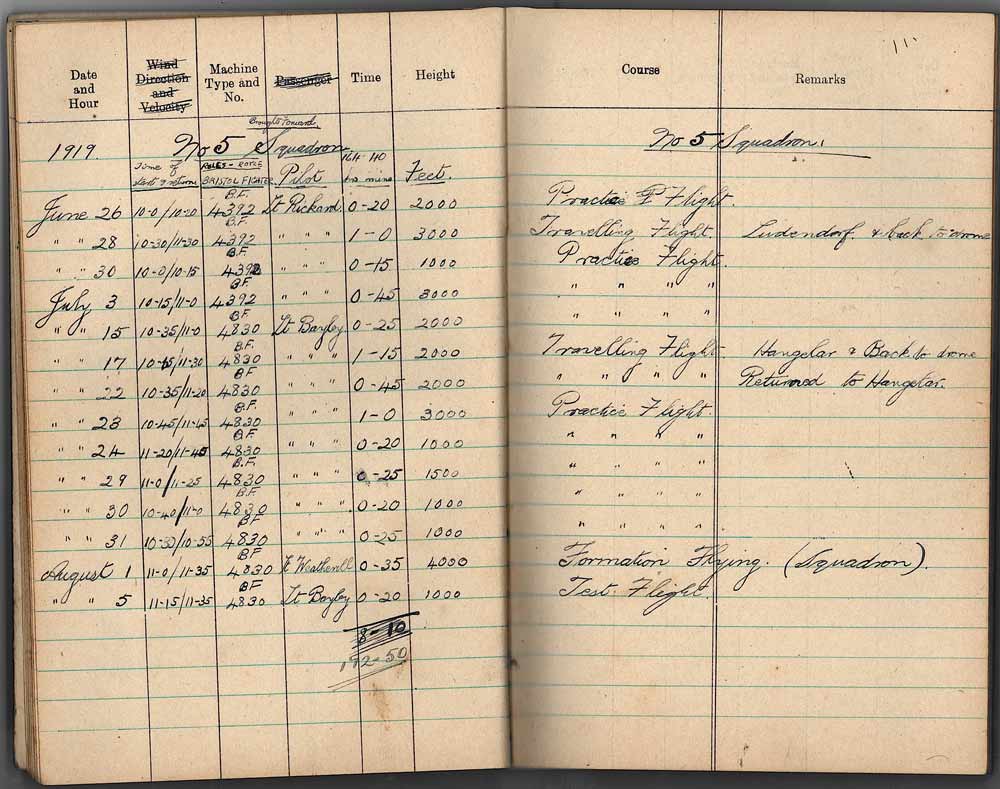 Date and Hour Wind Direction and Velocity Machine Type and No. Passenger Time Height Course Remarks
Brought Forward.
1919. No 5 Squadron 164 40 No 5 Squadron.
Time of start & return ROLLS-ROYCE BRISTOL FIGHTER Pilot hrs mins Feet.
June 26 10-0/10-20 B.F. 4392 Lt Rickard. 0-20 2000 Practice Flight.
" " 28 10-30/11-30 B.F. 4392 " " " 1-0 3000 Travelling Flight. Ludendorf. & back to drome
" " 30 10-0/10-15 B.F. 4392 " " " 0-15 1000 Practice Flight.
July 3 10-15/11-0 B.F. 4392 " " " 0-45 3000 " " " "
" " 15 10-35/11-0 B.F. 4830 Lt Bayley 0-25 2000 " " " "
" " 17 10-15/11-30 B.F. 4830 " " " 1-15 2000 Travelling Flight Hangelar & Back to drome
" " 22 10-35/11-20 B.F. 4830 " " " 0-45 2000 " " " " Returned to Hangelar.
" " 23 10-45/11-45 B.F. 4830 " " " 1-0 3000 Practice Flight.
" " 24 11-20/11-40 B.F. 4830 " " " 0-20 1000 " " " "
" " 29 11-0/11-25 B.F. 4830 " " " 0-25 1500 " " " "
" " 30 10-40/11-0 B.F. 4830 " " " 0-20 1000 " " " "
" " 31 10-30/10-55 B.F. 4830 " " " 0-25 1000 " " " "
August 1 11-0/11-35 B.F. 4830 Weatherill 0-35 4000 Formation Flying. (Squadron).
" " 5 11-15/11-35 B.F. 4830 Lt Bayley 0-20 1000 Test Flight.
8-10
172-50